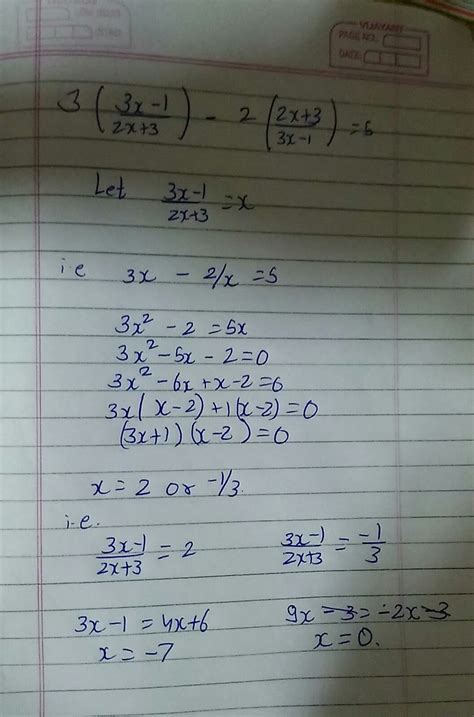 VIJAYASHREE
PAGE NO.:
DATE:
3 ( 3x-1 / 2x+3 ) - 2 ( 2x+3 / 3x-1 ) = 5
Let 3x-1 / 2x+3 = x
i e 3x - 2/x = 5
3x² - 2 = 5x
3x² - 5x - 2 = 0
3x² - 6x + x - 2 = 0
3x( x-2) + 1(x-2) = 0
(3x+1) (x-2) = 0
x = 2 or -1/3.
i.e.
3x-1 / 2x+3 = 2    3x-1 / 2x+3 = -1 / 3
3x-1 = 4x+6    9x - 3 = -2x - 3
x = -7    x = 0.